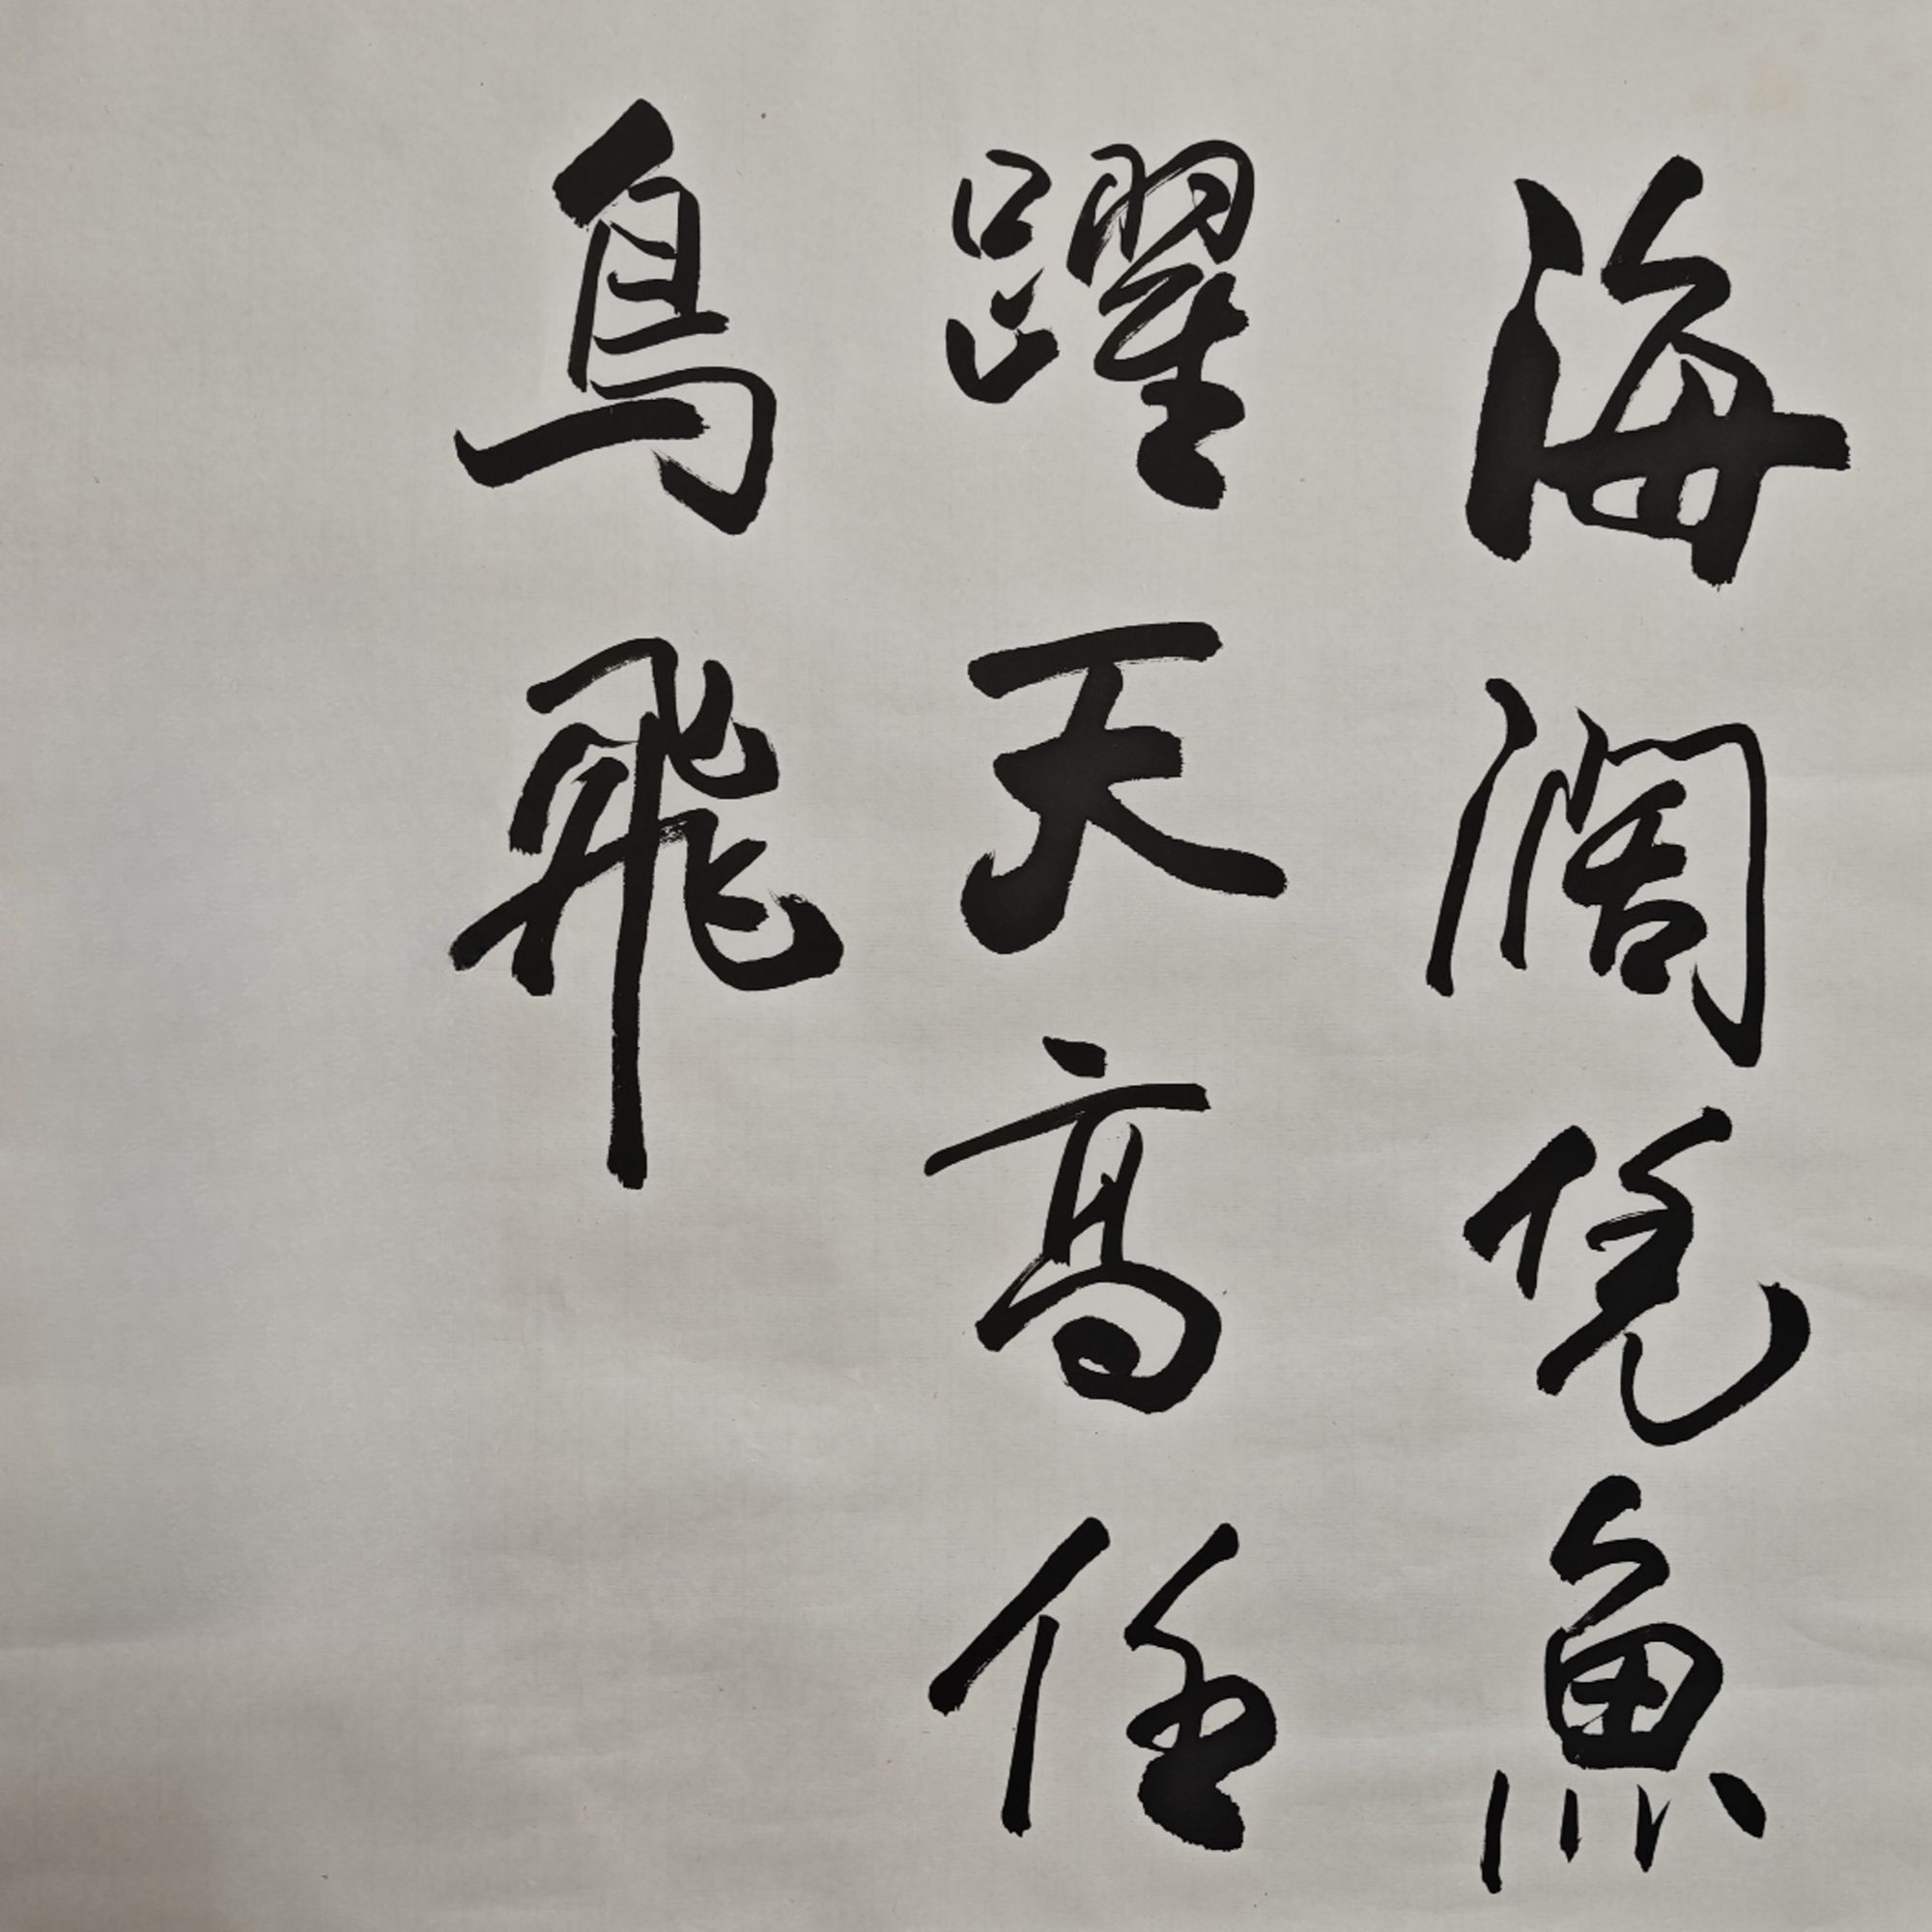 海濶凭魚
躍天高任
鳥飛